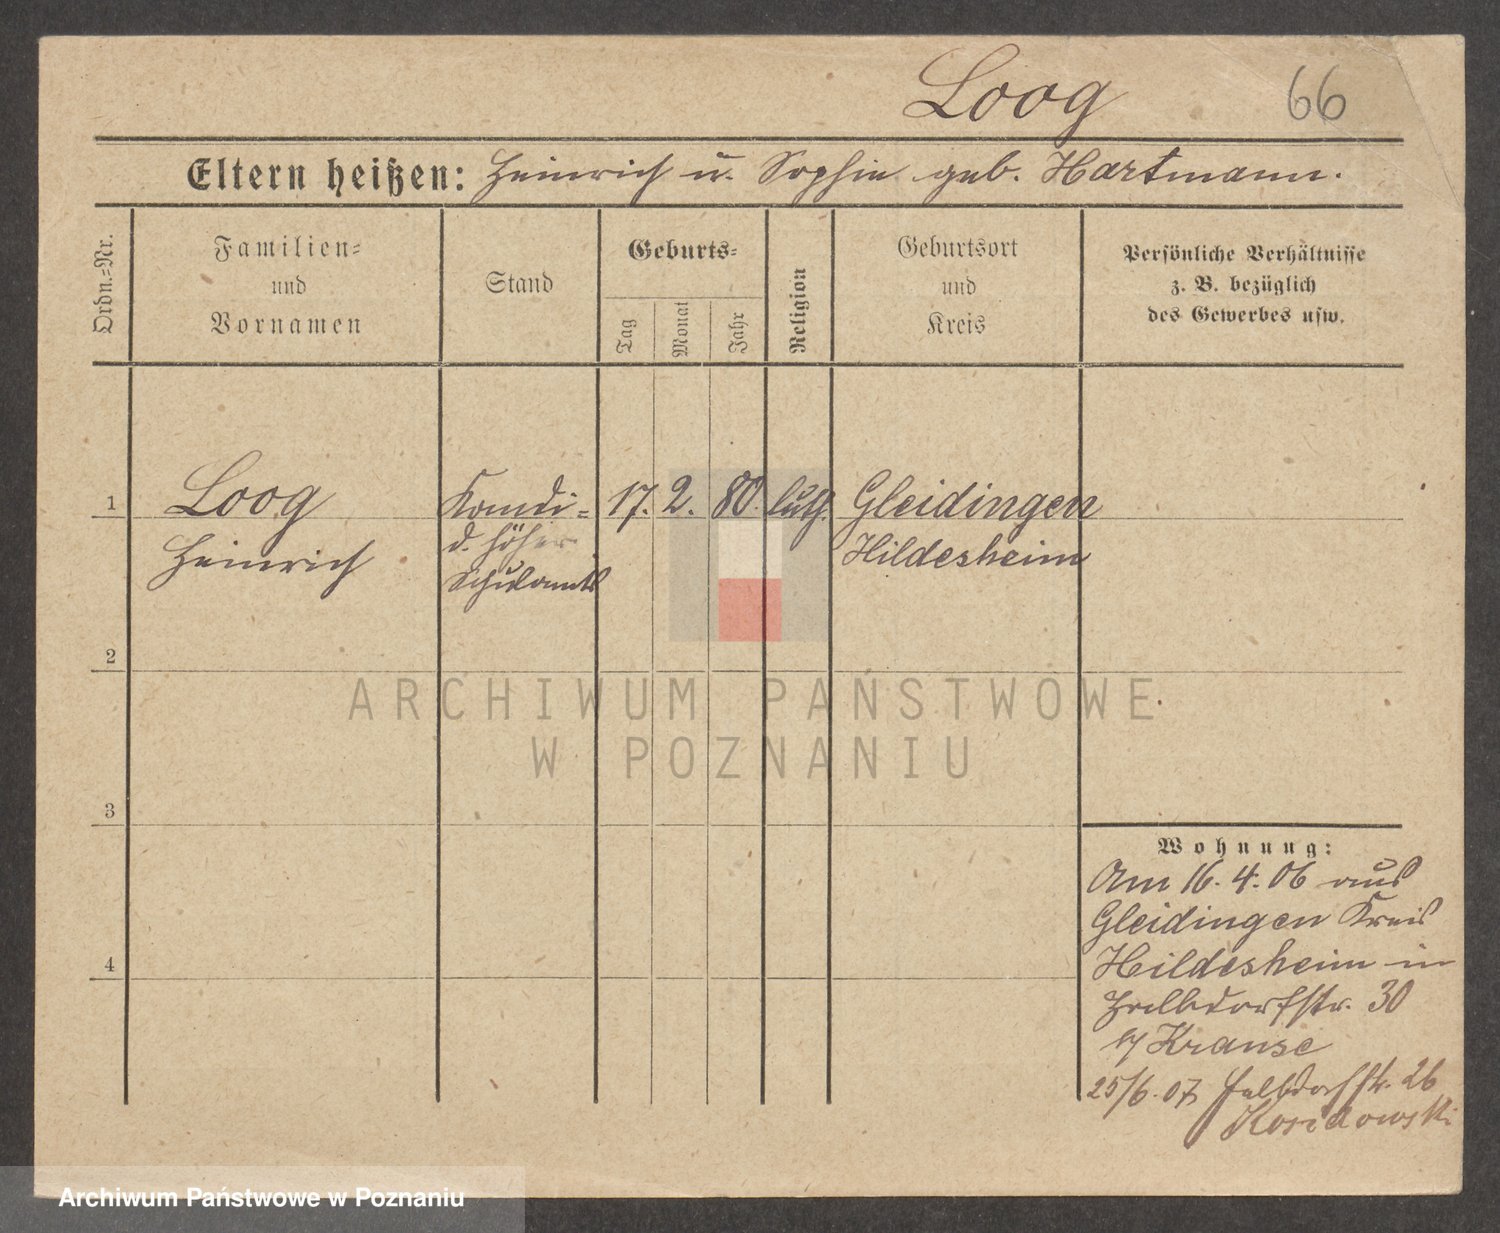 Loog 66
Eltern heißen: Heinrich u. Sophie geb. Hartmann.
Ordn.-Nr.
Familien-
und
Vornamen
Stand
Geburts-
Tag
Monat
Jahr
Religion
Geburtsort
und
Kreis
Persönliche Verhältnisse
z. B. bezüglich
des Gewerbes usw.
1 Loog Kandi- 17. 2. 80. luth. Gleidingen
Heinrich d. höher Hildesheim
Schulamts
2
ARCHIWUM PAŃSTWOWE
W POZNANIU
3
Wohnung:
Am 16. 4. 06 aus
Gleidingen Kreis
4
Hildesheim in
Halbdorfstr. 30
b/ Krause
25/6. 07 Halbdorfstr. 26
Kosidowski
Archiwum Państwowe w Poznaniu